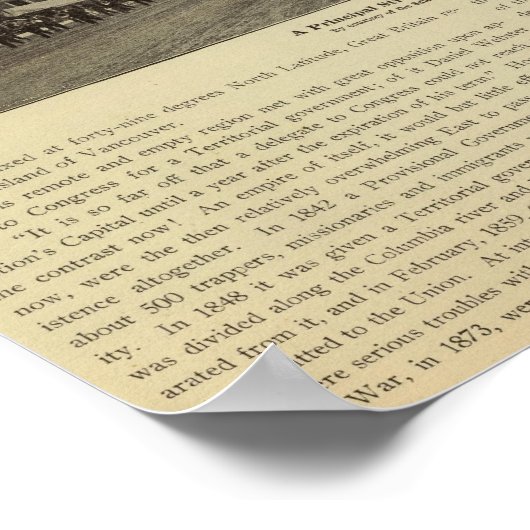 A Principal Str
by courtesy of the
at forty-nine degrees North Latitude, Great Britain re-
island of Vancouver
remote and empty region met with great opposition upon
to Congress for a Territorial government; of it Daniel Webster
"It is so far off that a delegate to Congress could not
tion's Capital until a year after the expiration of his term!"
contrast now! An empire of itself, it would but little
now, were the then relatively overwhelming East to
istence altogether. In 1842 a Provisional Govern
about 500 trappers, missionaries and immigrants
ity. In 1848 it was given a Territorial gov
was divided along the Columbia river and
arated from it, and in February, 1859
tted to the Union. At
ere serious troubles with
War, in 1873, we